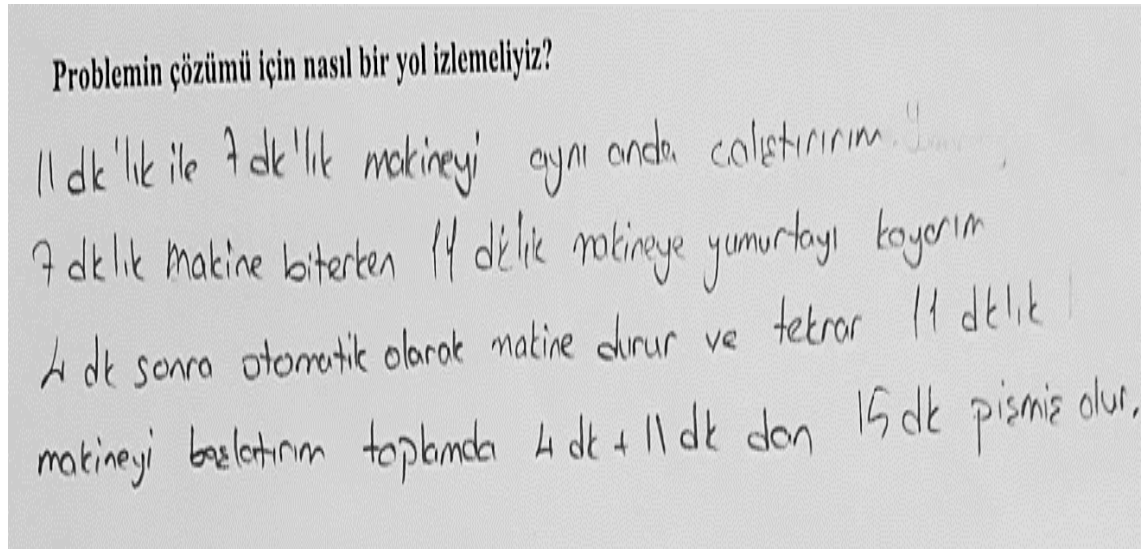 Problemin çözümü için nasıl bir yol izlemeliyiz?
11 dk'lık ile 7 dk'lık makineyi aynı anda calıştırırım.
7 dklık makine biterken 11 dk'lık makineye yumurtayı koyarım
4 dk sonra otomatik olarak makine durur ve tekrar 11 dklık
makineyi başlatırım toplamda 4 dk + 11 dk dan 15 dk pişmiş olur.